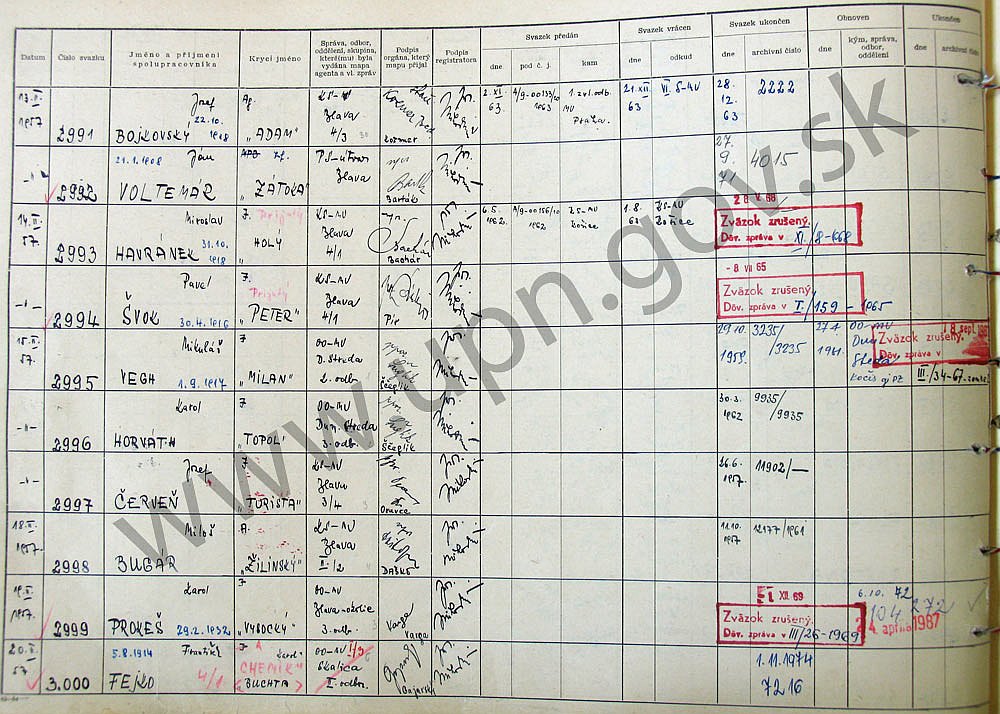 Datum
Číslo svazku
Jméno a příjmení spolupracovníka
Krycí jméno
Správa, odbor, oddělení, skupina, které(mu) byla vydána mapa agenta a vl. zpráv
Podpis orgána, který mapu přijal
Podpis registratora
Svazek předán
dne
pod č. j.
kam
Svazek vrácen
dne
odkud
Svazek ukončen
dne
archivní číslo
Obnoven
dne
kým, správa, odbor, oddělení
Ukončen
dne
archivní číslo
1957
2991
Jozef
22.10.
1918
BOJKOVSKÝ
Ag.
"ADAM"
KS-MV
Bzlava
4/3
2. XI.
63
A/9-00133/10
1963
1. zvl. odb.
MV
Praha.
21. XII.
63
VI. S-MV
28.
12.
63
2222
-"-
2992
21.1.1908
Ján
VOLTEMÁR
"ZÁTOKA"
Bzlava
Barták
27.
9.
71
4015
14. II.
57.
2993
Miroslav
HAVRÁNEK
31.10.
1918
Prijatý
"HOLÝ
KS-MV
Bzlava
4/1
Bachár
6.5.
1962
A/9-00156/10
1962
KS-MV
Košice
1.8.
63
KS-MV
Košice
Zväzok zrušený.
Dôv. zpráva v XI/8-1968
-"-
2994
Pavel
ŠVOK
30.4.1916
Prijatý
"PETER"
KS-MV
Bzlava
4/1
- 8 VII 65
Zväzok zrušený.
Dôv. zpráva v I/159-1965
15. II.
57.
2995
Mikuláš
VEGH
1.9.1917
"MILAN"
OO-MV
D. Streda
2. odb.
Ščeplík
29.10.
1958.
3235/
/3235
27.1
1961
OO-MV
Dun.
Streda
Zväzok zrušený.
Dôv. zpráva v III/34-67
-"-
2996
Karol
HORVÁTH
"TOPOĽ"
OO-MV
Dun. Streda
3. odb.
Ščeplík
30.3.
1962
9935/
/9935
-"-
2997
Jozef
ČERVEŇ
"TURISTA"
KS-MV
Bzlava
3/4
Oravec
26.6.
1957.
11902/-
18. II.
1957.
2998
Miloš
BUGÁR
A.
"ŽILINSKÝ"
KS-MV
Bzlava
II/2
DAŠKO
11.10.
1957
12177/1961
19. II.
1957.
2999
Karol
PROKEŠ
29.2.1932
"VYSOCKÝ"
OO-MV
Bzlava-okolie
3. odb.
Varga
XII 69
Zväzok zrušený.
Dôv. zpráva v III/26-1969
6.10. 72
104 272
4. apríla 1987
20. II.
57.
3.000
5.8.1914
František
FEJKO
4/1
"CHEMIK"
BUCHTA
OO-MV
Skalica
I. odbor.
1.11.1974
7216
www.upn.gov.sk